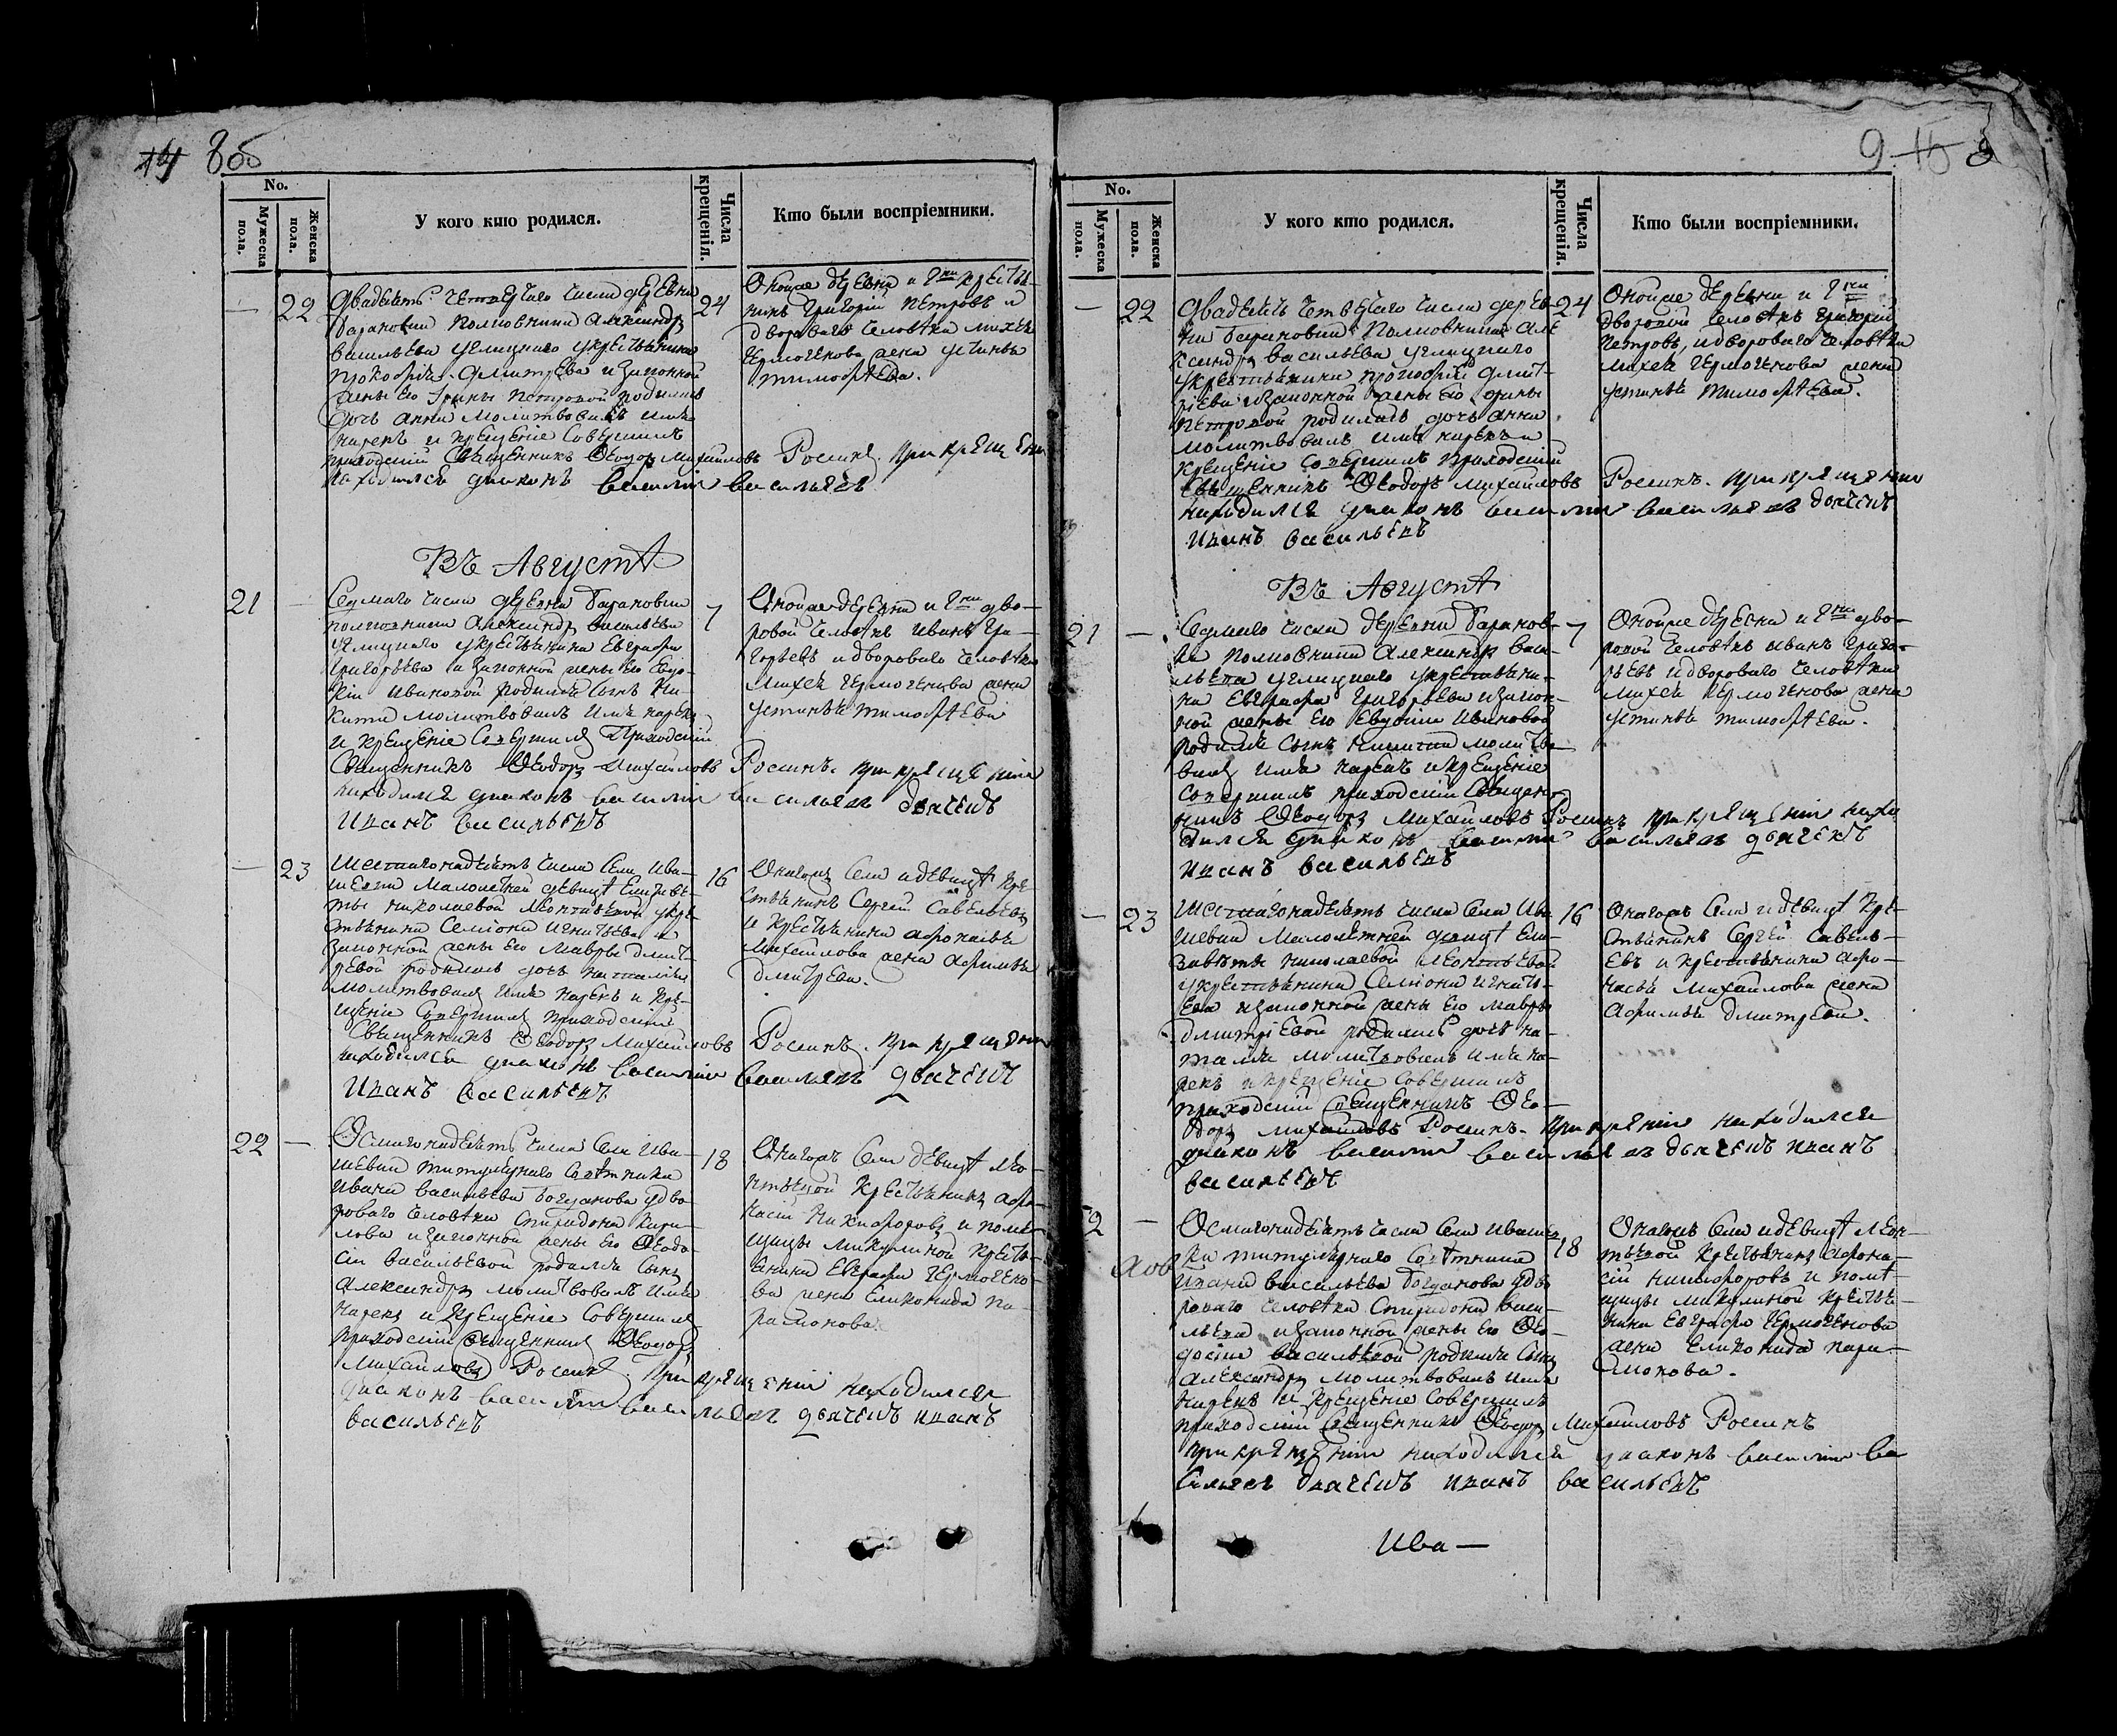 14 8об
No.
Мужеска пола.
Женска пола.
У кого кто родился.
Числа крещенія.
Кто были воспріемники.
— 22
Двадесять четвертаго числа деревни
Барановки Полковника Александра
Васильева Углицкаго у крестьянина
Прокофія Дмитрева и законной
жены его Ирины Петровой родилась
дочь Анна молитвовалъ имя
нарекъ и крещеніе совершилъ
приходскій священникъ Ѳеодоръ Михайловъ Росинъ. при крещеніи
находился диаконъ василии васильевъ
24
Оной же деревни и Гна крестья-
нинъ Григорій Петровъ и
двороваго человѣка Михея
Ермогенова жена Устинья
Тимофѣева.
Въ Августѣ
21 —
Седмаго числа деревни Барановки
полковника Александра Васильева
Углицкаго у крестьянина Евграфа
Григорьева и законной жены его Евдо-
кіи Ивановой родился сынъ Ни-
кита молитвовалъ имя нарекъ
и крещеніе совершилъ Приходскій
Священникъ Ѳеодоръ Михайловъ Росинъ. при крещеніи
находился диаконъ василии васильевъ дьячекъ
иванъ васильевъ
7
Оной же деревни и Гна дво-
ровой человѣкъ Иванъ Гри-
горьевъ и двороваго человѣка
Михея Ермогенова жена
Устинья Тимофѣева
— 23
Шестагонадесять числа Села Ива-
шевки Малолетней девицы Елизаве-
ты Николаевой Леонтьевой у кре-
стьянина Семіона Игнатьева и
законной жены его Мавры Дмит-
ревой родилась дочь Наталья
молитвовалъ имя нарекъ и кре-
щеніе совершилъ приходскій
Священникъ Ѳеодоръ Михайловъ Росинъ. при крещеніи
находился диаконъ василии васильевъ дьячекъ
иванъ васильевъ
16
Онагожъ Села и девицы кре-
стьянинъ Сергей Савельевъ
и крестьянина Афонасья
Михайлова жена Афимья
Дмитрева.
22 —
Осмагонадесять числа Села Ива-
шевки титулярнаго Совѣтника
Ивана Васильева Богданова у дво-
роваго человѣка Спиридона Кири-
лова и законной жены его Ѳеодо-
сіи Васильевой родился сынъ
Александръ молитвовалъ имя
нарекъ и крещеніе совершилъ
приходскій священникъ Ѳеодоръ
Михайловъ Росинъ при крещеніи находился
диаконъ василии васильевъ дьячекъ иванъ
васильевъ
18
Онагожъ Села девицы Лео-
нтьевой крестьянинъ Афо-
насій Никифоровъ и помѣ-
щицы Микулиной крестья-
нина Евграфа Ермогено-
ва жена Еликонида Па-
рамонова.
9 15
No.
Мужеска пола.
Женска пола.
У кого кто родился.
Числа крещенія.
Кто были воспріемники.
— 22
Двадесять четвертаго числа дерев-
ни Барановки Полковника Але
ксандра Васильева Углицкаго
у крестьянина Прокофія Дмит-
ріева и законной жены его Ирины
Петровой родилась дочь Анна
молитвовалъ имя нарекъ и
крещеніе совершилъ приходскій
священникъ Ѳеодоръ Михайловъ Росинъ. при крещении
находился диаконъ василии васильевъ дьячекъ
иванъ васильевъ
24
Оной же деревни и Гна
дворовой человѣкъ Григорій
Петровъ, и двороваго человѣка
Михея Ермогенова жена
Устинья Тимофѣева.
Въ Августѣ
21 —
Седмаго числа деревни Баранов-
ки полковника Александра Васи-
льева Углицкаго у крестьяни-
на Евграфа Григорьева и закон-
ной жены его Евдокіи Ивановой
родился сынъ Никита молитво-
валъ имя нарекъ и крещеніе
совершилъ приходскій священ-
никъ Ѳеодоръ Михайловъ Росинъ при крещеніи нахо
дился диаконъ василии васильевъ дьячекъ
иванъ васильевъ
7
Оной же деревни и Гна дво-
ровой человѣкъ Иванъ Григо-
рьевъ и двороваго человѣка
Михея Ермогенова жена
Устинья Тимофѣева.
— 23
Шестагонадесять числа Села Ива
шевки Малолѣтней девицы Ели-
заветы Николаевой Леонтьевой
у крестьянина Семіона Игнать-
ева и законной жены его Мавры
Дмитріевой родилась дочь На-
талья молитвовалъ имя на-
рекъ и крещеніе совершилъ
приходскій священникъ Ѳео-
доръ Михайловъ Росинъ. при крещеніи находился
диаконъ василии васильевъ дьячекъ иванъ
васильевъ
16
Онагожъ Села и девицы кре-
стьянинъ Сергей Савель-
евъ и крестьянина Афо-
насья Михайлова жена
Афимья Дмитрева.
2 —
Осмагонадесять числа Села Ивашев
ки титулярнаго Совѣтника
Ивана Васильева Богданова у дво
роваго человѣка Спиридона Васи-
льева и законной жены его Ѳео-
досіи Васильевой родился сынъ
Александръ молитвовалъ имя
нарекъ и крещеніе совершилъ
приходскій священникъ Ѳеодоръ Михайловъ Росинъ
при крещеніи находился диаконъ василии ва
сильевъ дьячекъ иванъ васильевъ
18
Онагожъ Села и девицы Леон-
тьевой крестьянинъ Афона-
сій Никифоровъ и помѣ-
щицы Микулиной крестья-
нина Евграфа Ермогенова
жена Еликонида Пара-
монова.
Ива—